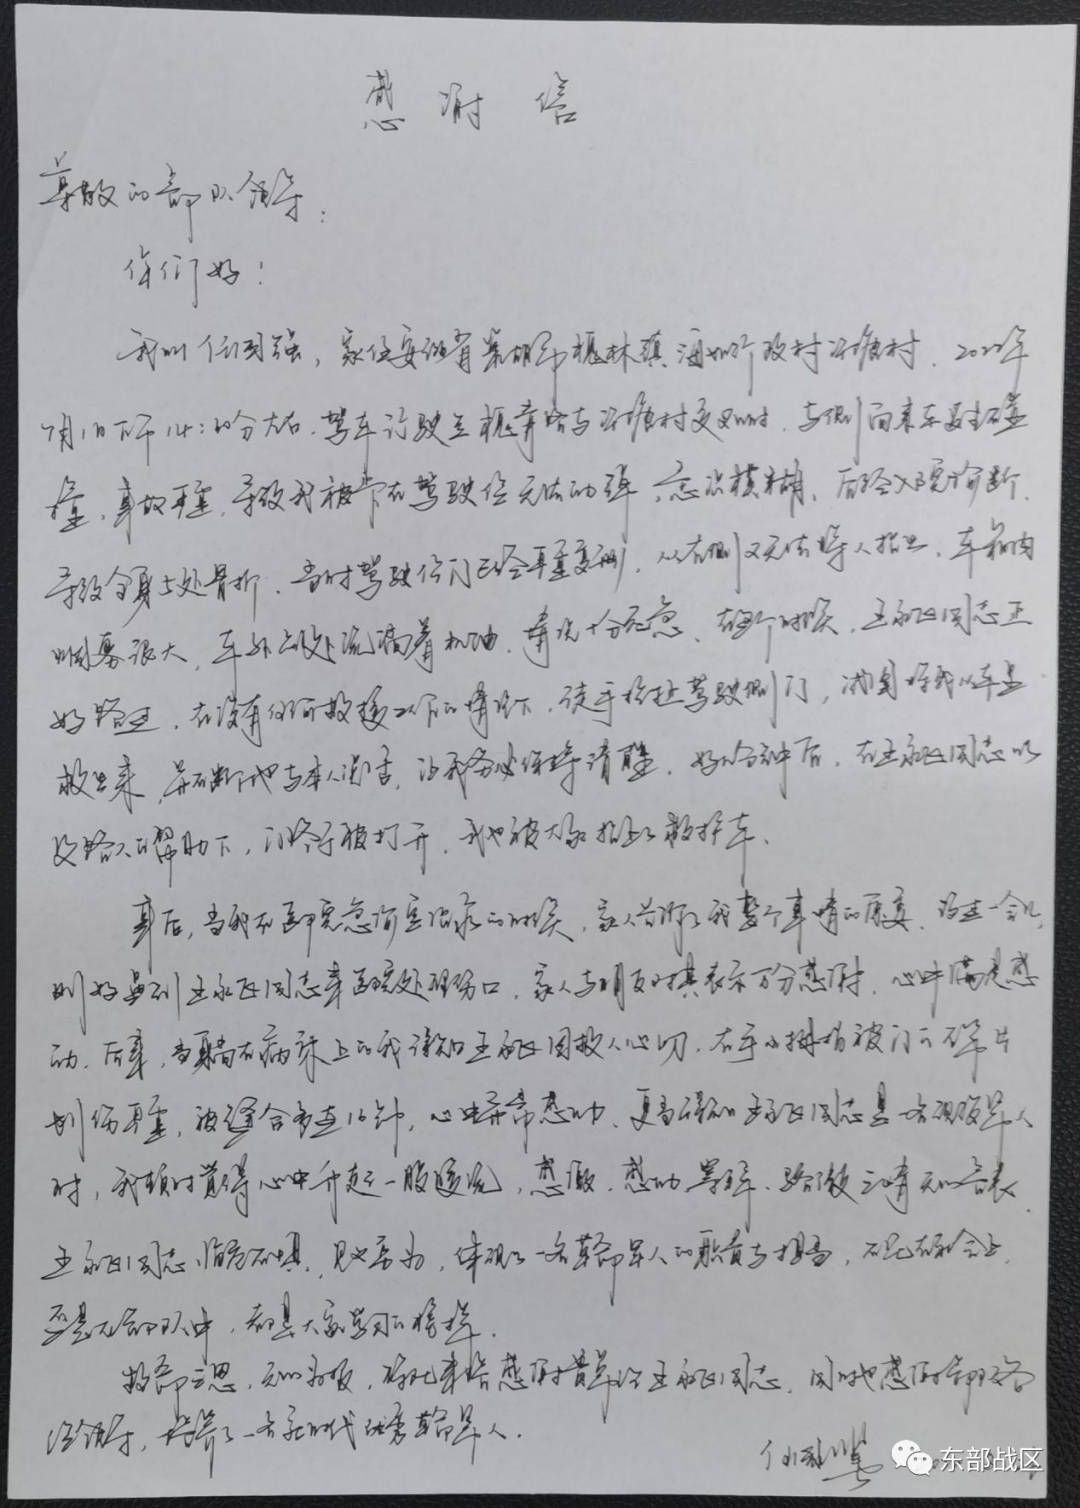 感谢信
尊敬的部队领导：
你们好！
我叫任国强，家住安徽省巢湖市槐林镇 行政村 村，2022年
7月1日下午14: 分左右，驾车行驶至槐 路与 村交叉口时，与侧面来车发生碰
撞，事故严重，导致我被卡在驾驶位无法动弹，意识模糊，后经医院诊断，
导致全身5处骨折。当时驾驶位门已经严重变形，从右侧又无法将人抬出，车箱内
烟雾很大，车外 处流淌着机油，情况十分危急，在这个时候，王永正同志正
好路过，在没有任何救援工具的情况下，徒手拉扯驾驶侧门， 将我从车里
救出来，并不断地与本人说话，让我务必保持清醒。好 分钟后，在王永正同志以
及路人的帮助下，门终于被打开，我也被大家抬上了救护车。
事后，当我在医院急诊室治疗的时候，家人告诉了我整个事情的原委，没过一会儿，
刚好遇到王永正同志来医院处理伤口，家人与朋友对其表示万分感谢，心中满是感
动。后来，当躺在病床上的我得知王永正因救人心切，右手小拇指被门 碎片
划伤严重，被缝合多达10针，心中非常感动，更当得知王永正同志是一名现役军人
时，我顿时觉得心中升起一股暖流，感激、感动、 之情无以言表。
王永正同志临危不惧，见义勇为，体现了一名革命军人的职责与担当，不论在社会上，
还是在部队中，都是大家学习的榜样。
救命之恩，无以为报，谨此来信感谢贵单位王永正同志，同时也感谢部队各
位领导，培养了一名新时代优秀革命军人。
任国强
东部战区